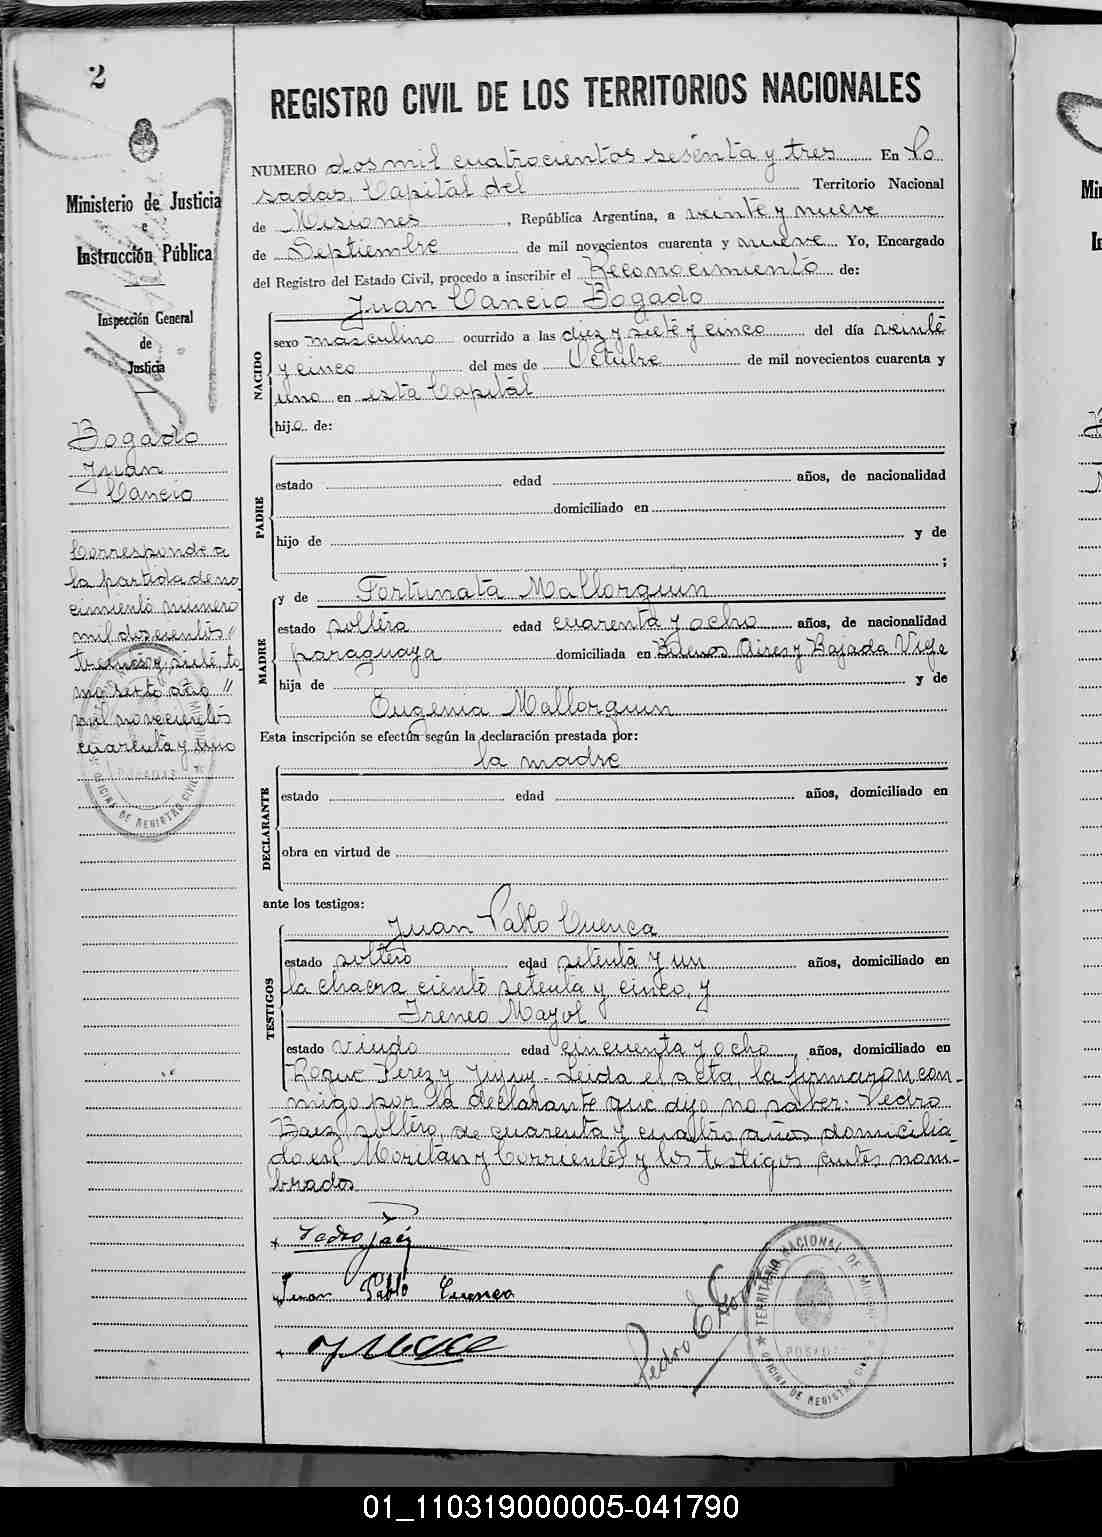 2
Ministerio de Justicia
e
Instrucción Pública
Inspección General
de
Justicia
Bogado
Juan
Cancio
Corresponde a
la partida de na
cimiento número
mil doscientos
treinta y siete, to
mo sexto año
mil novecientos
cuarenta y uno
REGISTRO CIVIL DE LOS TERRITORIOS NACIONALES
NUMERO dos mil cuatrocientos sesenta y tres En Po
sadas, Capital del Territorio Nacional
de Misiones, República Argentina, a veinte y nueve
de Septiembre de mil novecientos cuarenta y nueve Yo, Encargado
del Registro del Estado Civil, procedo a inscribir el Reconocimiento de:
Juan Cancio Bogado
NACIDO
sexo masculino ocurrido a las diez y siete y cinco del día veinte
y cinco del mes de Octubre de mil novecientos cuarenta y
uno en esta Capital
hijo de:
PADRE
estado edad años, de nacionalidad
domiciliado en
hijo de y de
;
MADRE
y de Fortunata Mallorquin
estado soltera edad cuarenta y ocho años, de nacionalidad
paraguaya domiciliada en Buenos Aires y Bajada Vieja
hija de y de
Eugenia Mallorquin
Esta inscripción se efectúa según la declaración prestada por:
la madre
DECLARANTE
estado edad años, domiciliado en
obra en virtud de
ante los testigos:
Juan Pablo Cuenca
TESTIGOS
estado soltero edad setenta y un años, domiciliado en
la chacra ciento setenta y cinco, y
Ireneo Mayol
estado viudo edad cincuenta y ocho años, domiciliado en
Roque Perez y Jujuy. Leida el acta, la firmaron con-
migo por la declarante que dijo no saber: Pedro
Baez, soltero, de cuarenta y cuatro años domicilia-
do en Moritan y Corrientes y los testigos antes nom-
brados
Pedro Báez
Juan Pablo Cuenca
Pedro
TERRITORIO NACIONAL DE MISIONES
POSADAS
OFICINA DE REGISTRO CIVIL
01_110319000005-041790